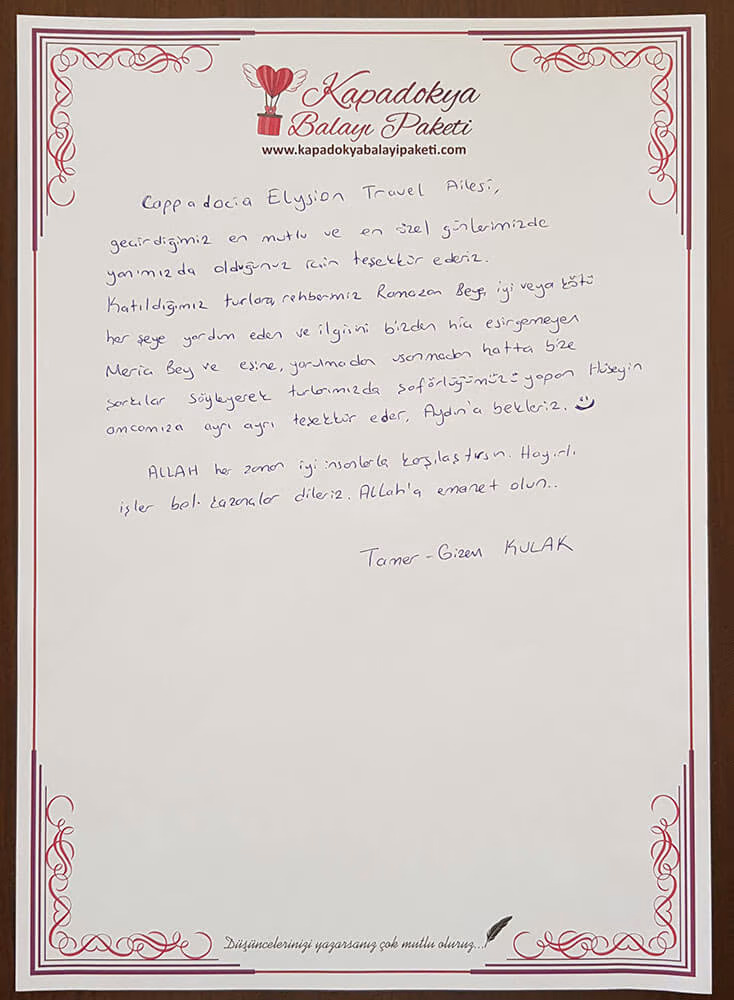 Kapadokya
Balayı Paketi
www.kapadokyabalayipaketi.com
Cappadocia Elysion Travel Ailesi,
geçirdiğimiz en mutlu ve en özel günlerimizde
yanımızda olduğunuz için teşekkür ederiz.
Katıldığımız turlara, rehberimiz Ramazan Beye, iyi veya kötü
her şeye yardım eden ve ilgisini bizden hiç esirgemeyen
Meriç Bey ve eşine, yorulmadan usanmadan hatta bize
şarkılar söyleyerek turlarımızda şoförlüğümüzü yapan Hüseyin
amcamıza ayrı ayrı teşekkür eder, Aydın'a bekleriz.
ALLAH her zaman iyi insanlarla karşılaştırsın. Hayırlı
işler bol kazançlar dileriz. Allah'a emanet olun..
Tamer - Gizem KULAK
Düşüncelerinizi yazarsanız çok mutlu oluruz...